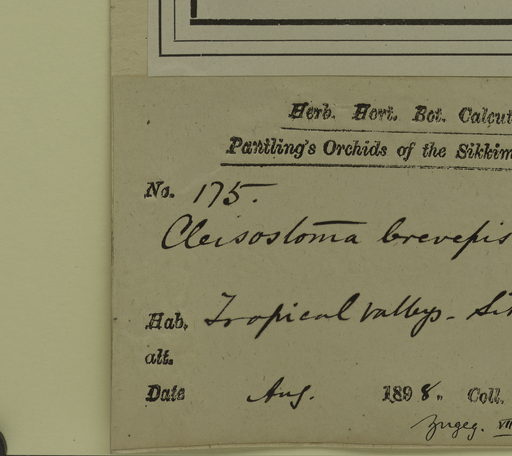 Herb. Hort. Bot. Calcut
Pantling's Orchids of the Sikkim
No. 175.
Cleisostoma brevepis
Hab. Tropical Valleys - Si
alt.
Date Aug. 1898. Coll.
zugeg. VII